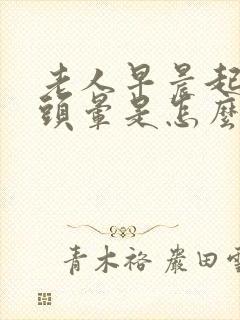 老人早晨起
頭暈是怎麼
青木裕 嚴田雪